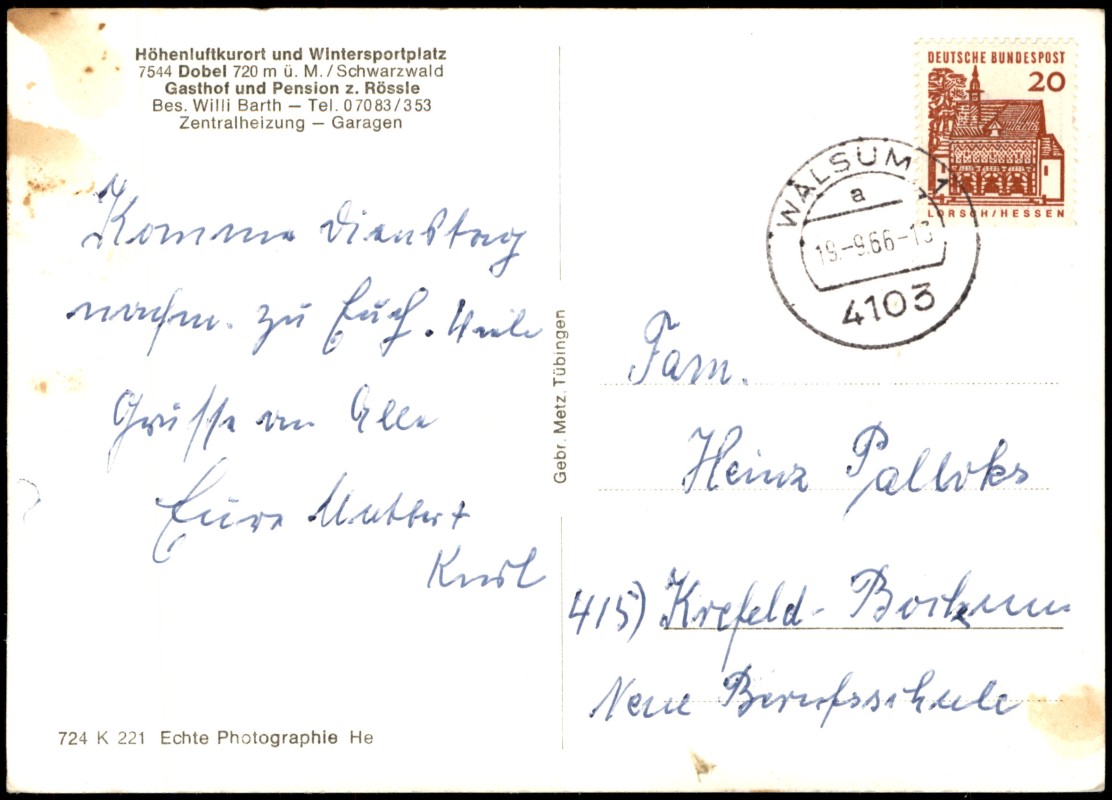 Höhenluftkurort und Wintersportplatz
7544 Dobel 720 m ü. M./Schwarzwald
Gasthof und Pension z. Rössle
Bes. Willi Barth – Tel. 07083/353
Zentralheizung – Garagen
Komme Dienstag
nachm. zu Euch. Viele
Grüsse an Alle
Eure Mutter +
Karl
724 K 221 Echte Photographie He
Gebr. Metz, Tübingen
DEUTSCHE BUNDESPOST
20
LORSCH/HESSEN
WALSUM 1
a
19.-9.66-13
4103
Fam.
Heinz Palloks
415) Krefeld-Bockum
Neue Berufsschule